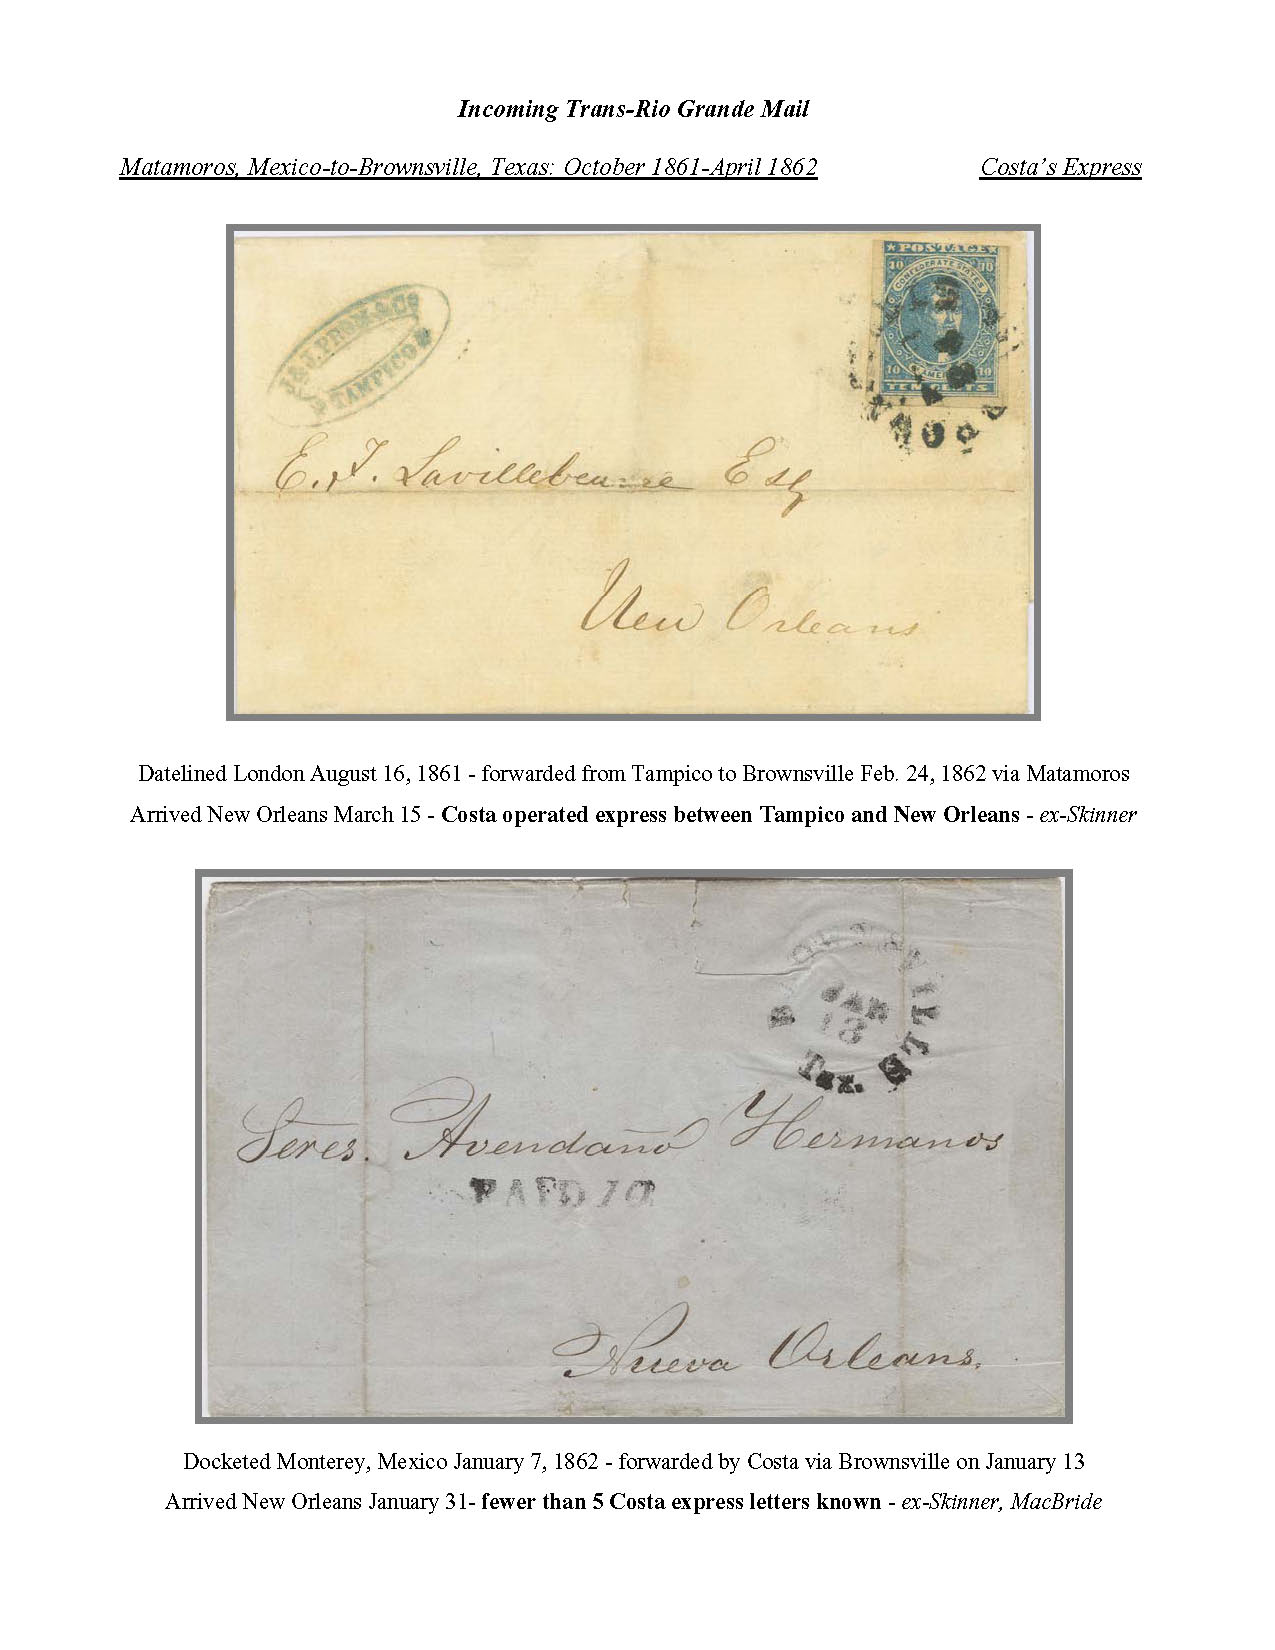 Incoming Trans-Rio Grande Mail
Matamoros, Mexico-to-Brownsville, Texas: October 1861-April 1862 Costa's Express
J & J. PROM. & Co
TAMPICO
POSTAGE
10 10
CONFEDERATE STATES
OF AMERICA
10 10
TEN CENTS
E. J. Lavillebeuvre Esq
New Orleans
Datelined London August 16, 1861 - forwarded from Tampico to Brownsville Feb. 24, 1862 via Matamoros
Arrived New Orleans March 15 - Costa operated express between Tampico and New Orleans - ex-Skinner
BROWNSVILLE
JAN
13
Tex.
Señres. Avendaño Hermanos
PAID 10
Nueva Orleans.
Docketed Monterey, Mexico January 7, 1862 - forwarded by Costa via Brownsville on January 13
Arrived New Orleans January 31- fewer than 5 Costa express letters known - ex-Skinner, MacBride